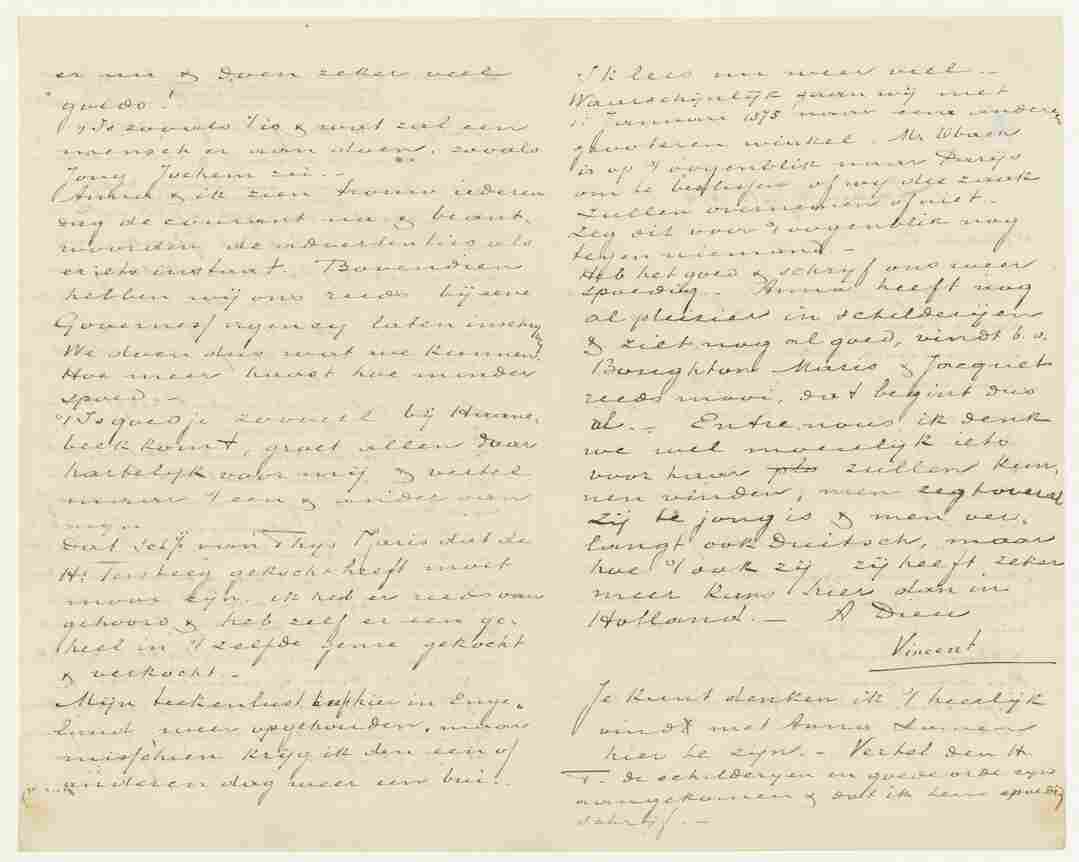 er nu & doen zeker veel
goeds!
't Is zooals 't is & wat zal een
mensch er aan doen, zooals
Jong Jochem zei. -
Anna & ik zien trouw iederen
dag de courant na & beant,
woorden de advertenties als
er iets instaat. Bovendien
hebben wij ons reeds bij eene
Governess agency laten inschrij
We doen dus wat we kunnen.
Hoe meer haast hoe minder
spoed. -
't Is goed je zooveel bij Haane,
beek komt, groet allen daar
hartelijk voor mij & vertel
maar 't een & ander van
mij.
Dat Schij van Thys Maris dat de
Hr Tersteeg gekocht heeft moet
mooi zijn, ik had er reeds van
gehoord & heb zelf er een ge,
heel in 't zelfde genre gekocht
& verkocht. -
Mijn teekenlust is hier in Enge,
land weer opgehouden, maar
misschien krijg ik den een of
anderen dag weer een bui..
Ik lees nu weer veel -
Waarschijnlijk gaan wij met
1 Januari 1875 naar een andere,
grooteren winkel. Mr Obach
is op 't oogenblik naar Parijs
om te beslissen of wij die zaak
zullen overnemen of niet. -
Zeg dit voor 't oogenblik nog
tegen niemand -
Heb het goed & schrijf ons weer
spoedig. - Anna heeft nog
al pleisier in schilderijen
& ziet nog al goed, vindt b.v.
Boughton Maris & Jacquet
reeds mooi, dat begint dus
al. - Entre nous ik denk
we wel moeielijk iets
voor haar zullen kun,
nen vinden, men zegt overal
zij te jong is & men ver,
langt ook Duitsch, maar
hoe 't ook zij zij heeft zeker
meer kans hier dan in
Holland. - A Dieu
Vincent
Je kunt denken ik 't heerlijk
vindt met Anna samen
hier te zijn. - Vertel den H.
T. de schilderijen in goede orde zijn
aangekomen & dat ik hem spoedig
schrijf. -